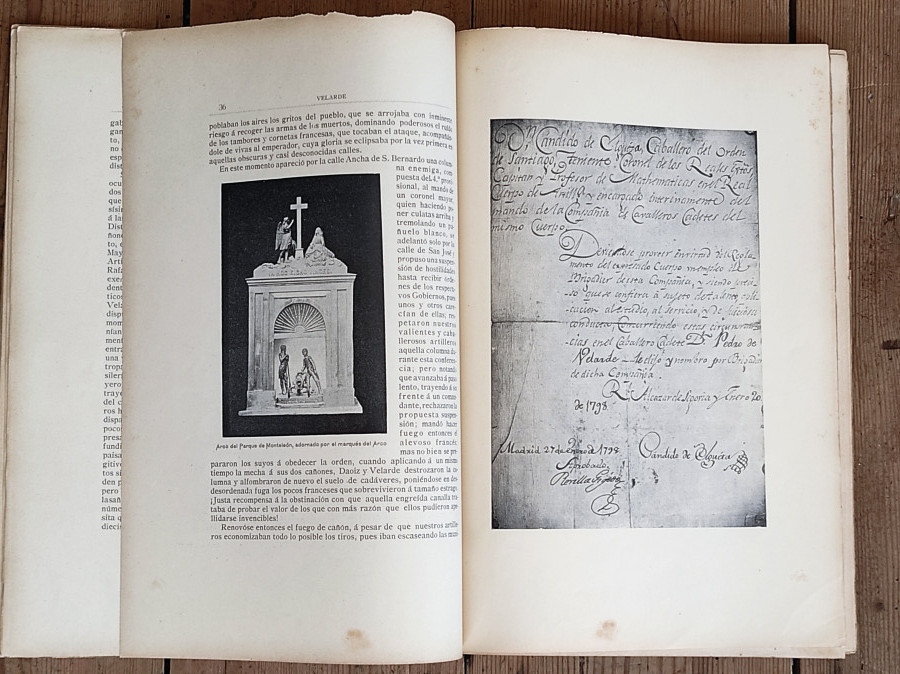 gab
gan
esp
dist
S
ocu
dos
que
sísin
á la
Dist
ñone
to, e
May
Arti
Rafa
exe
dent
ticos
Vela
dos
mom
nfan
men
entra
una
tropa
siler
yero
traye
del c
ros h
dispa
pues
fund
paisa
gitiv
tos si
pero
lasañ
núme
sita q
diecin
36 VELARDE
poblaban los aires los gritos del pueblo, que se arrojaba con inminente
riesgo á recoger las armas de los muertos, dominando poderosos el ruido
de los tambores y cornetas francesas, que tocaban el ataque, acompañán-
dole de vivas al emperador, cuya gloria se eclipsaba por la vez primera en
aquellas obscuras y casi desconocidas calles.
En este momento apareció por la calle Ancha de S. Bernardo una colum-
na enemiga, com-
puesta del 4.º provi-
sional, al mando de
un coronel mayor,
quien haciendo po-
ner culatas arriba y
tremolando un pa-
ñuelo blanco, se
adelantó solo por la
calle de San José y
propuso una suspen-
sión de hostilidades
hasta recibir órde-
nes de los respecti-
vos Gobiernos, pues
unos y otros care-
cían de ellas; res-
petaron nuestros
valientes y caba-
llerosos artilleros
aquella columna du-
rante esta conferen-
cia; pero notando
que avanzaba á paso
lento, trayendo á su
frente á un coman-
dante, rechazaron la
propuesta suspen-
sión; mandó hacer
fuego entonces el
alevoso francés,
mas no bien se pre-
Arco del Parque de Monteleón, adornado por el marqués del Arco
pararon los suyos á obedecer la orden, cuando aplicando á un mismo
tiempo la mecha á sus dos cañones, Daoíz y Velarde destrozaron la co-
lumna y alfombraron de nuevo el suelo de cadáveres, poniéndose en des-
desordenada fuga los pocos franceses que sobrevivieron á tamaño estrago.
¡Justa recompensa á la obstinación con que aquella engreída canalla tra-
taba de probar el valor de los que con más razón que ellos pudieron ape-
llidarse invencibles!
Renovóse entonces el fuego de cañón, á pesar de que nuestros artille-
ros economizaban todo lo posible los tiros, pues iban escaseando las muni-
Dn. Candido de Elgueta, Caballero del Orden
de Santiago, Theniente Coronel de los Reales Extos,
Capitan y Profesor de Mathematicas en el Real
Cuerpo de Artillª y encargado interinamente del
mando de la Compañia de Cavalleros Cadetes del
mismo Cuerpo
Deviendose proveer en virtud de el Regla-
mento del expresado Cuerpo un empleo de
Brigadier de esta Compañia, y siendo preci-
so que se confiera á sujeto de talento, aplicacion al estudio, al servicio, y de juiciosa
conducta, Concurriendo estas circunstan-
cias en el Caballero Cadete Dn. Pedro de
Velarde le elijo y nombro por Brigadier
de dicha Compañia.
Rl. Alcazar de Segovia y Enero 20
de 1798.
Madrid 27 de Enero de 1798
Aprobado
Candido de Elgueta